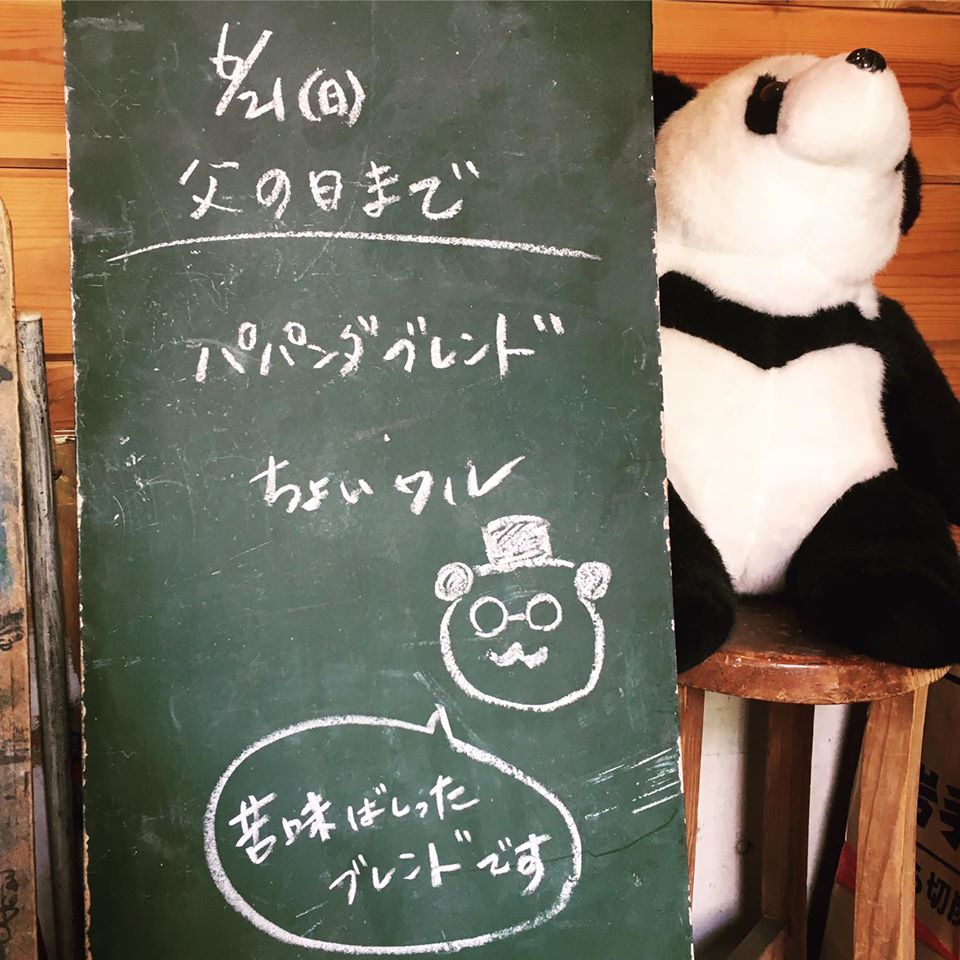 6/21(日)
父の日まで
パパンダブレンド
ちょいワル
苦味ばしった
ブレンドです